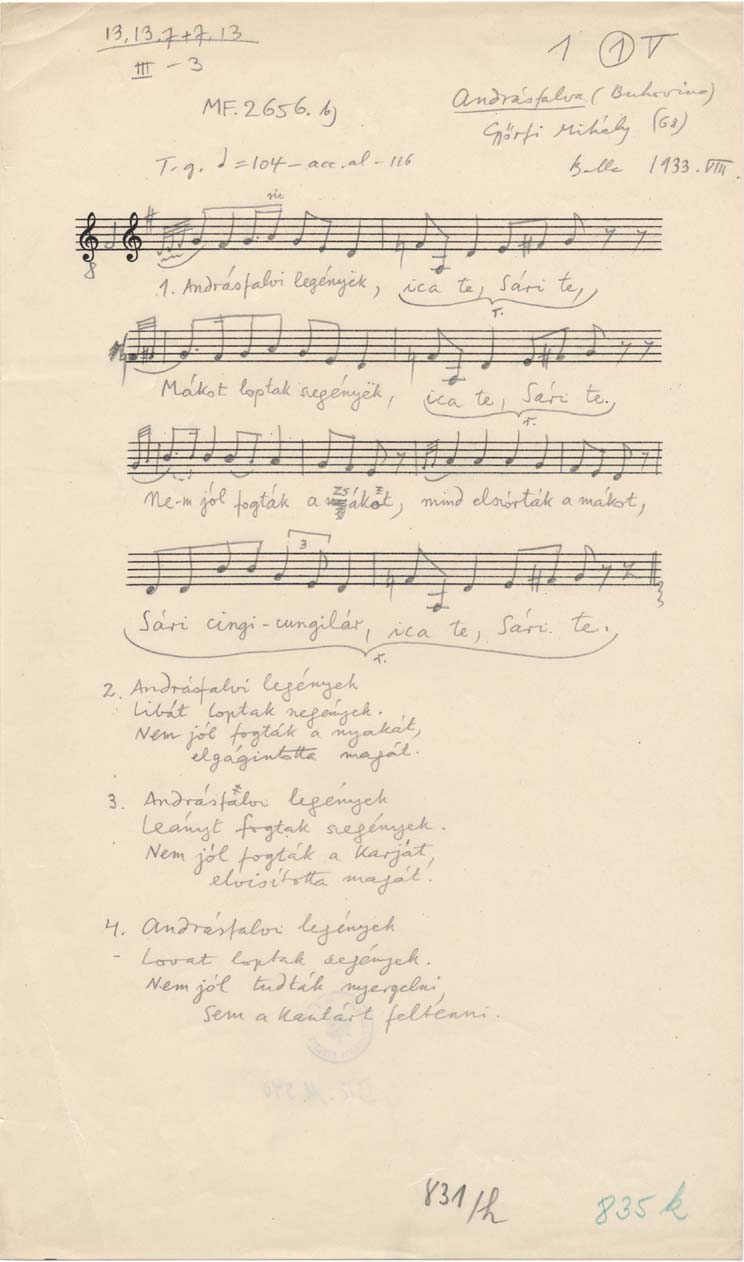 13, 13, 7+7, 13
III – 3
1 1 V
MF. 2656. b)
Andrásfalva (Bukovina)
Györfi Mihály (68)
T-g. = 104 – acc. al – 116
Balla 1933. VIII.
sic
8
1. Andrásfalvi legényëk, ica te, Sári te,
r.
Mákot loptak szegényëk, ica te, Sári te.
r.
Ne-m jól fogták a zsákot, mind elszórták a mákot,
3
Sári cingi-cungilár, ica te, Sári te.
r.
2. Andrásfalvi legények
Libát loptak szegények.
Nem jól fogták a nyakát,
elgágintotta magát.
3. Andrásfalvi legények
Leányt fogtak szegények.
Nem jól fogták a karját,
elvisította magát.
4. Andrásfalvi legények
- Lovat loptak szegények.
Nem jól tudták nyergelni,
Sem a kantárt feltënni.
831/h
835 k